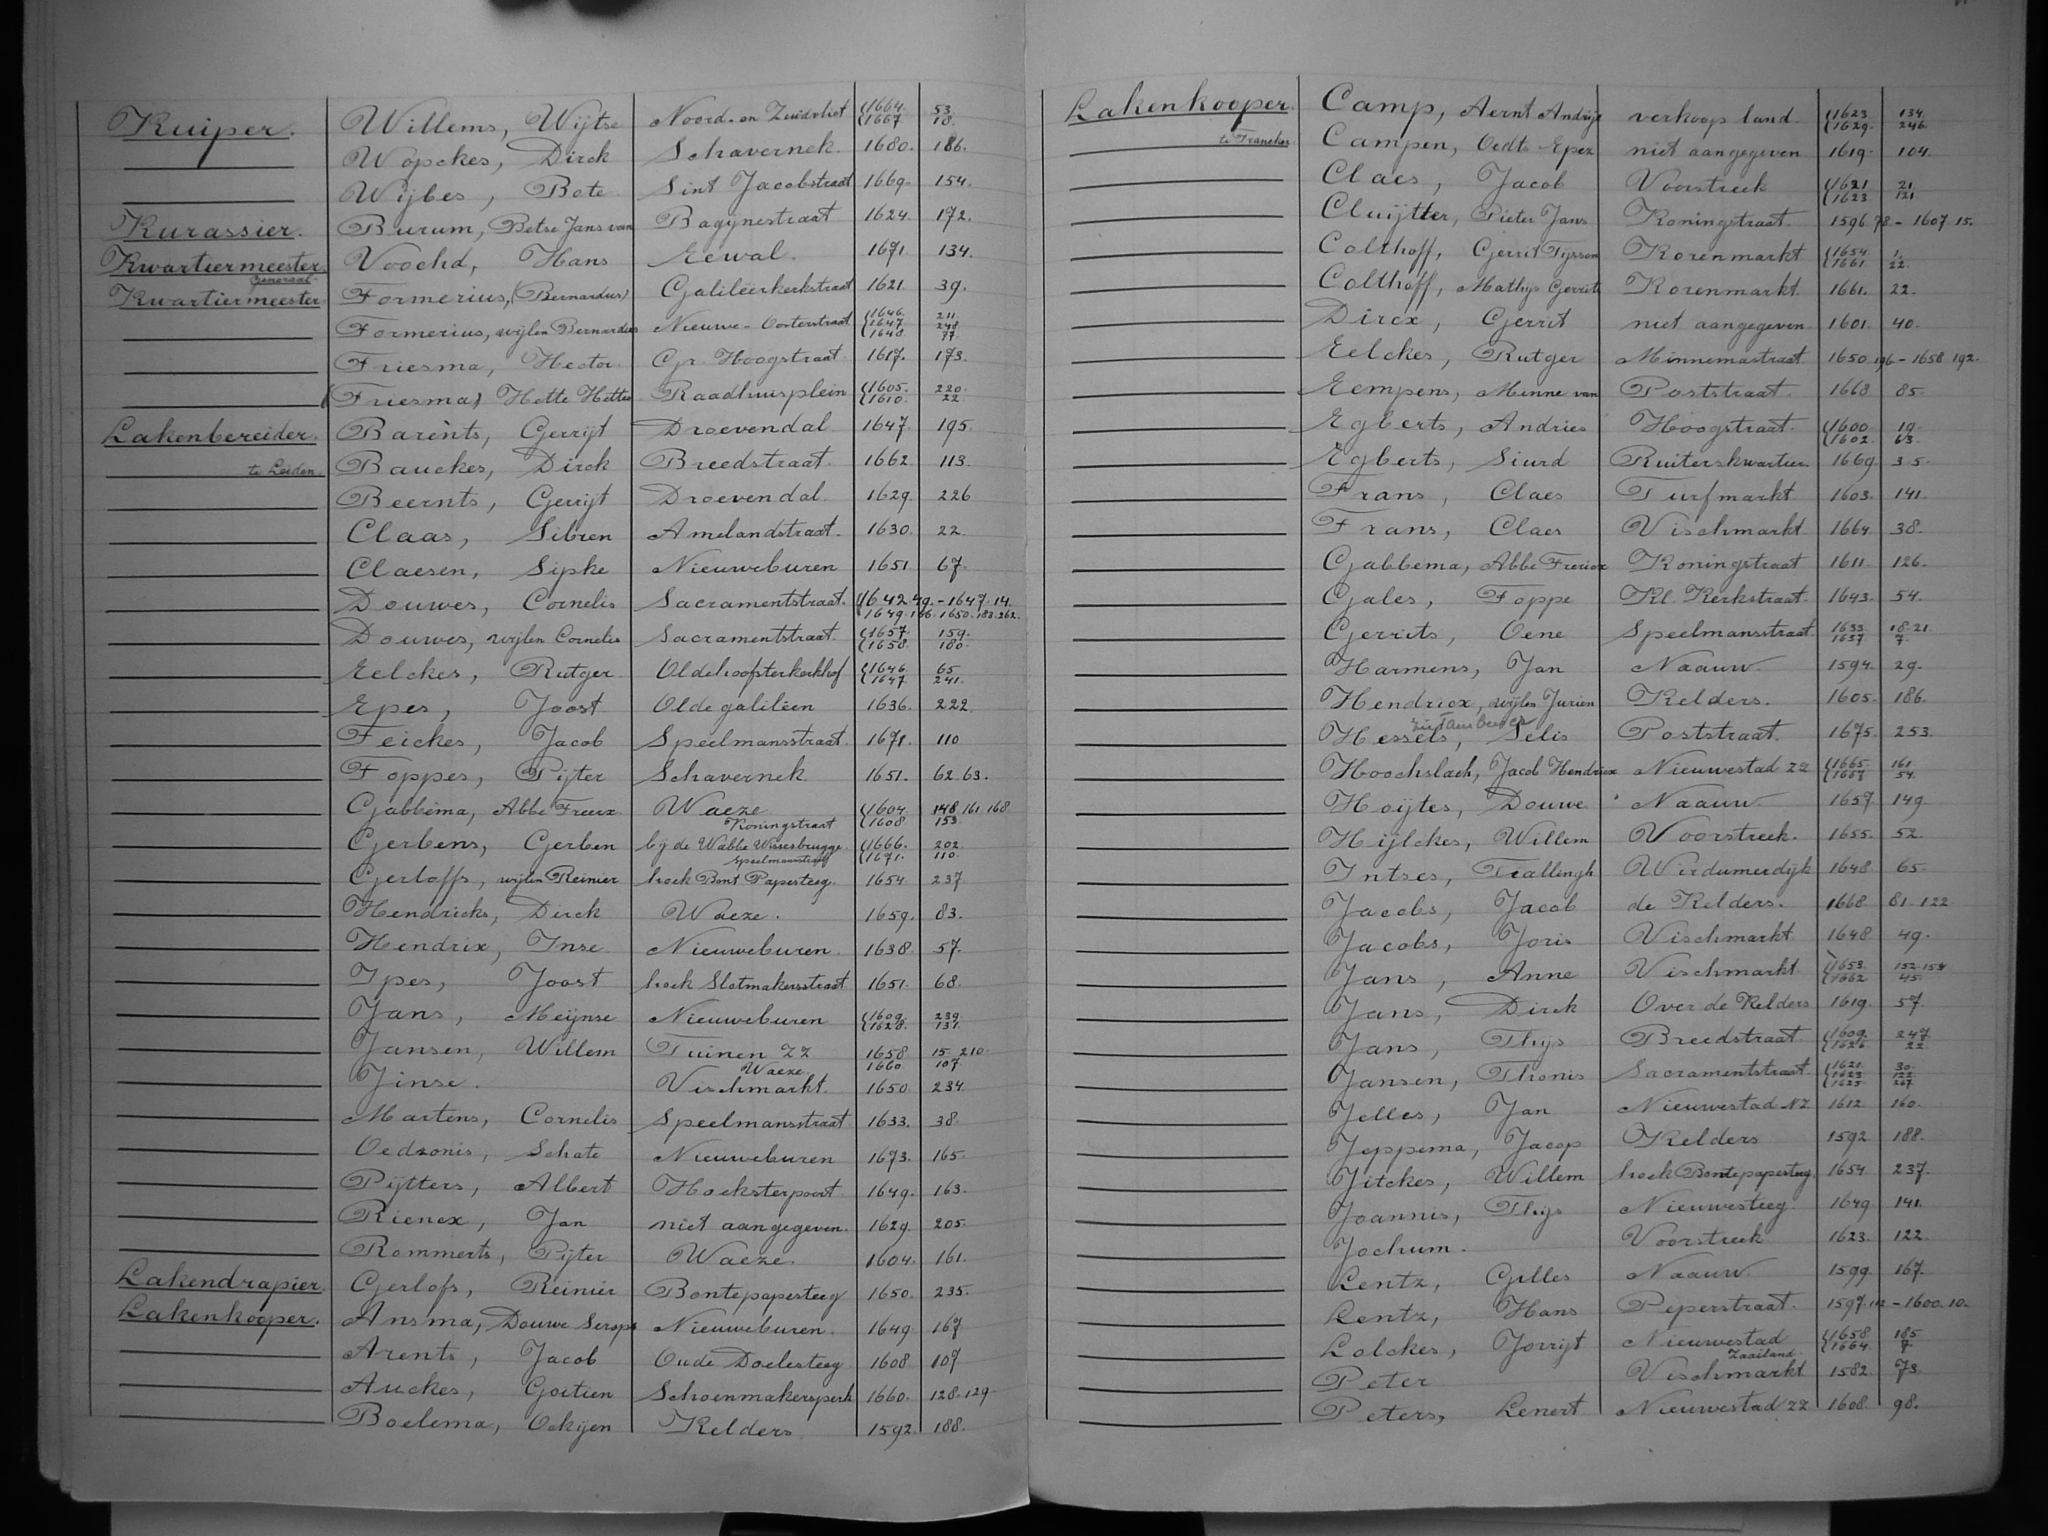 Kuiper. Willems, Wijtse Noord- en Zuidvliet 1664. 53.
1667 18.
Wopckes, Dirck Schavernek. 1680. 186.
Wijbes, Bote Sint Jacobstraat 1669. 154.
Kurassier. Burum, Betse Jans van Bagijnestraat 1624. 172.
Kwartiermeester Voochd, Hans Eewal. 1671 134.
Generaal
Kwartiermeester Formerius, (Bernardus) Galileërkerkstraat 1621. 39.
Formerius, wijlen Bernardus Nieuwe-Oosterstraat 1646. 211.
1647. 248.
1648. 77.
Friesma, Hector. Gr. Hoogstraat. 1617. 173.
(Friesma) Hette Hettes Raadhuisplein 1605. 220.
1610. 22.
Lakenbereider. Barents, Gerrijt Droevendal. 1647. 195.
te Leiden. Bauckes, Dirck Breedstraat. 1662. 113.
Beernts, Gerrijt Droevendal. 1629. 226
Claas, Sibren Amelandstraat. 1630. 22.
Claesen, Sipke Nieuweburen 1651. 67.
Douwes, Cornelis Sacramentstraat. 1642.49. - 1647.14.
1649.166. 1650.183.262.
Douwes, wijlen Cornelis Sacramentstraat. 1657. 159.
1658. 180.
Eelckes, Rutger. Oldehoofsterkerkhof 1646. 65.
1647 241.
Epes, Joost Oldegalileën 1636. 222.
Feickes, Jacob Speelmansstraat. 1671. 110
Foppes, Pijter Schavernek 1651. 62.63.
Gabbema, Abbe Freerx. Waeze 1604. 148.161.168.
Koningstraat 1608 153.
Gerbens, Gerben bij de Wabbe Wissesbrugge. 1666. 202.
Speelmansstraat 1671. 110.
Gerloffs, wijlen Reinier hoek Bont Papesteeg. 1654. 237.
Hendricks, Dirck Waeze. 1659. 83.
Hendrix, Inse Nieuweburen. 1638. 57.
Ipes, Joost hoek Slotmakersstraat 1651. 68.
Jans, Meijnse Nieuweburen 1609. 239.
1628. 131.
Jansen, Willem Tuinen ZZ 1658 15. 210.
Waeze. 1660 107.
Jinse. Vischmarkt. 1650. 234.
Martens, Cornelis Speelmansstraat 1633. 38.
Oedsonis, Schate Nieuweburen 1673. 165.
Pijtters, Albert Hoeksterpoort. 1649. 163.
Rienex, Jan niet aangegeven. 1629. 205.
Rommerts, Pijter Waeze. 1604. 161.
Lakendrapier. Gerlofs, Reinier Bontepapesteeg 1650. 235.
Lakenkooper. Ansma, Douwe Serops Nieuweburen. 1649. 167
Arents, Jacob Oude Doelesteeg. 1608 107
Auckes, Goitien Schoenmakersperk 1660. 128.129.
Boelema, Ockijen Kelders. 1592. 188.
Lakenkooper. Camp, Aernt Andrijs verkoop land. 1623. 134.
1629. 246.
te Franeker. Campen, Oedts Epez niet aangegeven 1619. 104.
Claes, Jacob Voorstreek 1621. 21.
1623 121.
Cluijtter, Pieter Jans Koningstraat. 1596.78 - 1607.15.
Colthoff, Gerrit Tijssen Korenmarkt 1654. 1.
1661 22.
Colthoff, Mathijs Gerrits Korenmarkt. 1661. 22.
Dircx, Gerrit niet aangegeven. 1601. 40.
Eelckes, Rutger Minnemastraat 1650.196 - 1658.192.
Eempens, Minne van Poststraat. 1668 85.
Egberts, Andries Hoogstraat. 1600. 19.
1602. 63.
Egberts, Siurd Ruiterskwartier. 1669. 35.
Frans, Claes Turfmarkt 1603. 141.
Frans, Claes Vischmarkt 1664. 38.
Gabbema, Abbe Freriox Koningstraat 1611. 126.
Gales, Foppe Kl. Kerkstraat. 1643. 54.
Gerrits, Oene Speelmansstraat. 1633. 18.21.
1637 7.
Harmens, Jan Naauw. 1594. 29.
Hendriox, wijlen Jurien Kelders. 1605. 186.
Hessels, Selis Poststraat. 1675. 253.
Hoochslach, Jacob Hendriox Nieuwestad ZZ 1665. 161.
1667 54.
Hoijtes, Douwe Naauw. 1657. 149.
Hijlckes, Willem Voorstreek. 1655. 52.
Intses, Tiallingh Wirdumerdijk 1648 65.
Jacobs, Jacob de Kelders. 1668 81.122.
Jacobs, Joris Vischmarkt 1648 49.
Jans, Anne Vischmarkt. 1653. 152.154
1662 45.
Jans, Dirck Over de Kelders 1619. 57.
Jans, Thijs Breedstraat 1609. 247
1626 22
Jansen, Thonis Sacramentstraat. 1621. 30.
1623. 122.
1625. 267.
Jelles, Jan Nieuwestad NZ. 1612 160.
Jeppema, Jacop Kelders 1592 188.
Jitckes, Willem hoek Bontepapesteeg. 1654. 237.
Joannis, Thijs Nieuwesteeg. 1649 141.
Jochum. Voorstreek 1623. 122.
Lentz, Gilles Naauw. 1599. 167.
Lentz, Hans Peperstraat. 1597.112 - 1600.10.
Lolckes, Jorrijt Nieuwestad 1658 185.
Zaailand. 1664. 7.
Peter Vischmarkt 1582. 73.
Peters, Lenert Nieuwestad ZZ 1608. 98.